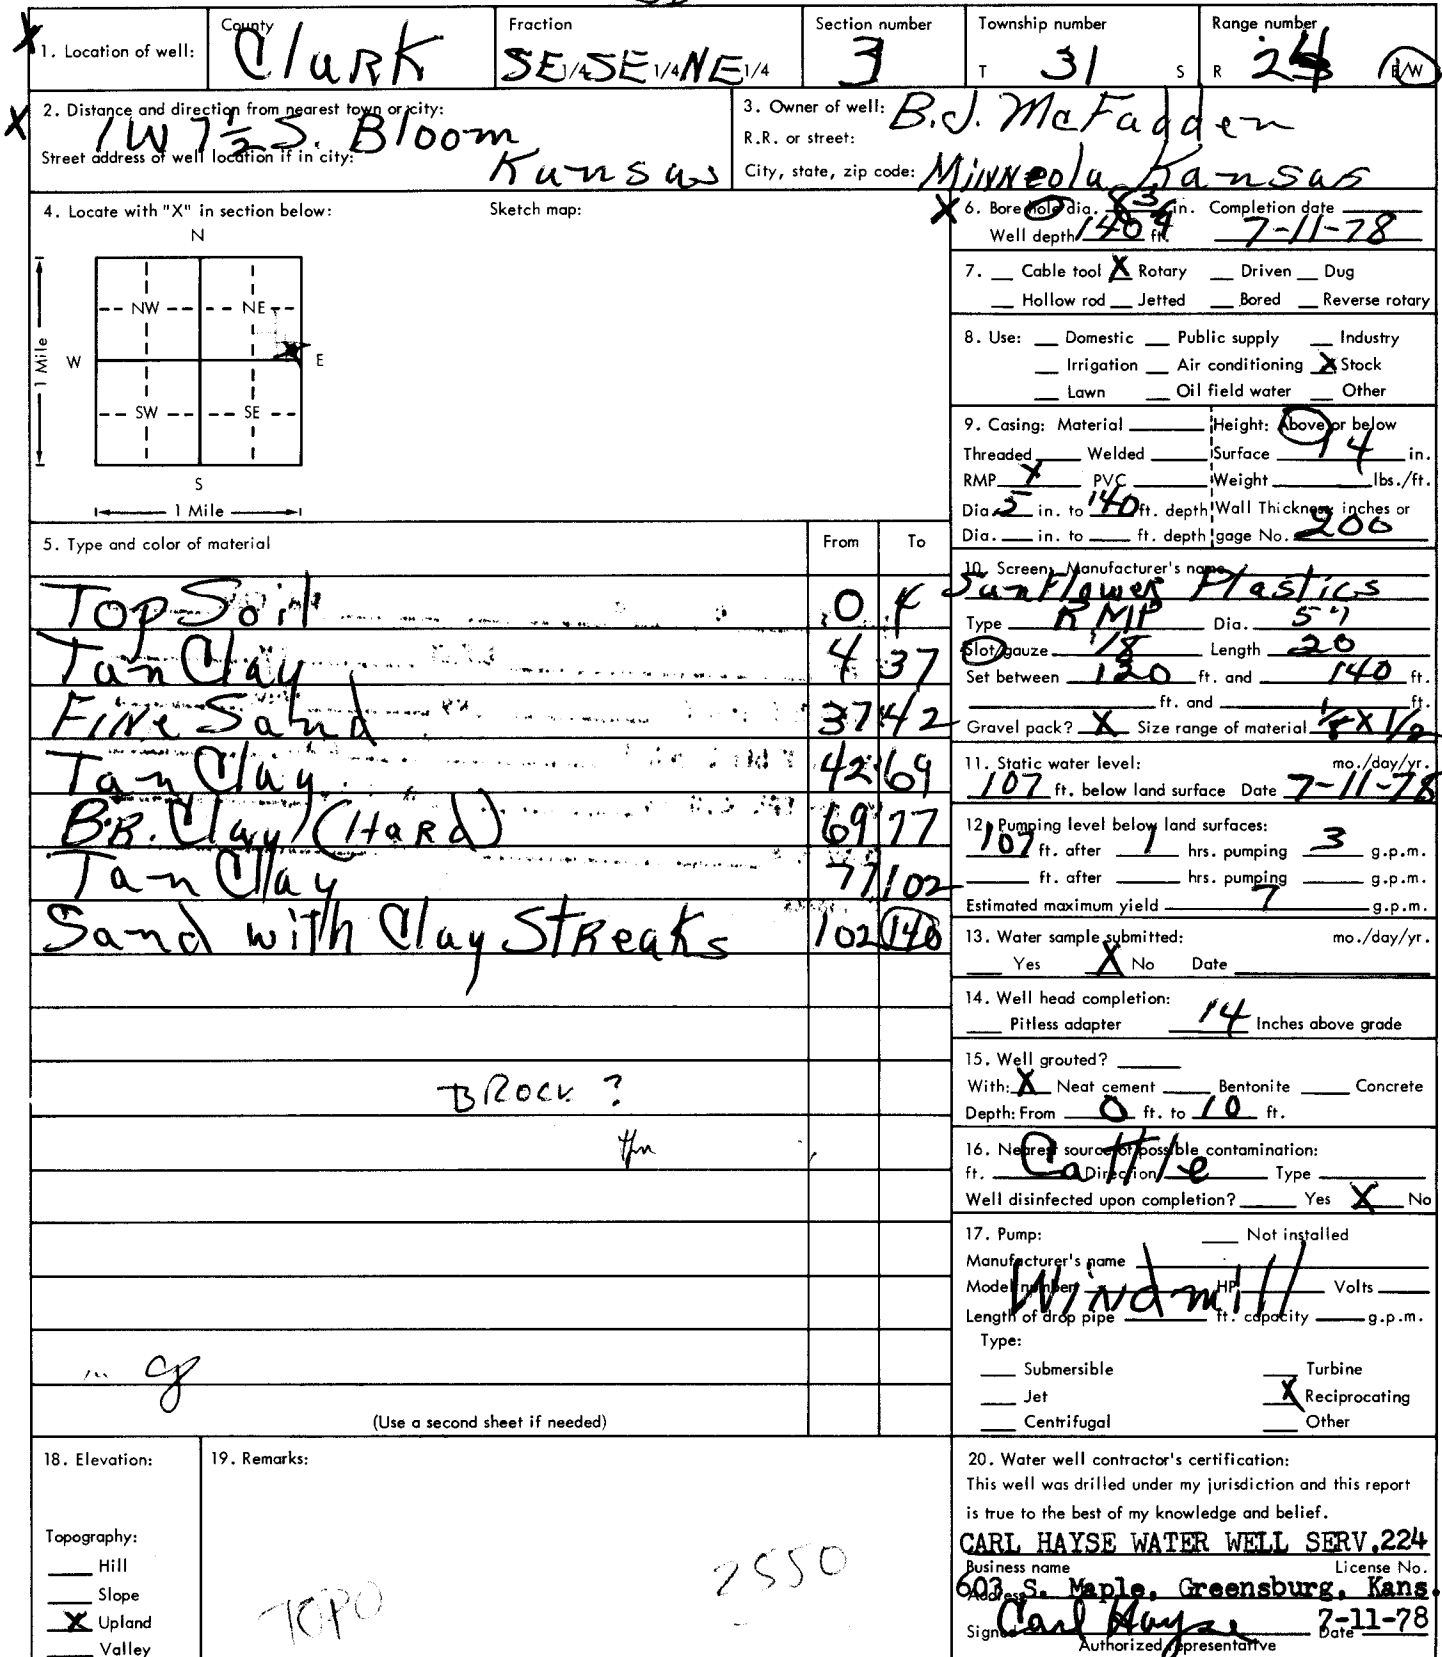 1. Location of well:
County
Clark
Fraction
SE 1/4 SE 1/4 NE 1/4
Section number
3
Township number
T 31 S
Range number
R 24 E/W
2. Distance and direction from nearest town or city:
1W 7 1/2 S. Bloom
Street address of well location if in city:
Kansas
3. Owner of well: B.J. McFadden
R.R. or street:
City, state, zip code: Minneola Kansas
4. Locate with "X" in section below:
Sketch map:
N
NW NE
W E
1 Mile
SW SE
S
1 Mile
X
6. Bore hole dia. in. Completion date
Well depth 140 ft. 7-11-78
7. Cable tool X Rotary Driven Dug
Hollow rod Jetted Bored Reverse rotary
8. Use: Domestic Public supply Industry
Irrigation Air conditioning X Stock
Lawn Oil field water Other
9. Casing: Material Height: Above or below
Threaded Welded Surface 14 in.
RMP X PVC Weight lbs./ft.
Dia. 5 in. to 140 ft. depth Wall Thickness: inches or
Dia. in. to ft. depth gage No. 200
5. Type and color of material From To
Top Soil 0 4
Tan Clay 4 37
Fine Sand 37 42
Tan Clay 42 69
BR. Clay (Hard) 69 77
Tan Clay 77 102
Sand with Clay Streaks 102 140
BROCK ?
(Use a second sheet if needed)
10. Screen: Manufacturer's name
Sunflower Plastics
Type RMP Dia. 5"
Slot/gauze 18 Length 20
Set between 120 ft. and 140 ft.
ft. and ft.
Gravel pack? X Size range of material 1/8 X 1/2
11. Static water level: mo./day/yr.
107 ft. below land surface Date 7-11-78
12. Pumping level below land surfaces:
107 ft. after 1 hrs. pumping 3 g.p.m.
ft. after hrs. pumping g.p.m.
Estimated maximum yield 7 g.p.m.
13. Water sample submitted: mo./day/yr.
Yes X No Date
14. Well head completion:
Pitless adapter 14 Inches above grade
15. Well grouted?
With: X Neat cement Bentonite Concrete
Depth: From 0 ft. to 10 ft.
16. Nearest source of possible contamination:
Cattle
ft. Direction Type
Well disinfected upon completion? Yes X No
17. Pump: Not installed
Manufacturer's name
Windmill
Model number HP Volts
Length of drop pipe ft. capacity g.p.m.
Type:
Submersible Turbine
Jet X Reciprocating
Centrifugal Other
18. Elevation:
Topography:
Hill
Slope
X Upland
Valley
19. Remarks:
TOPO
2550
20. Water well contractor's certification:
This well was drilled under my jurisdiction and this report
is true to the best of my knowledge and belief.
CARL HAYSE WATER WELL SERV. 224
Business name License No.
603 S. Maple, Greensburg, Kans.
Address
Signed Carl Hayse Date 7-11-78
Authorized representative